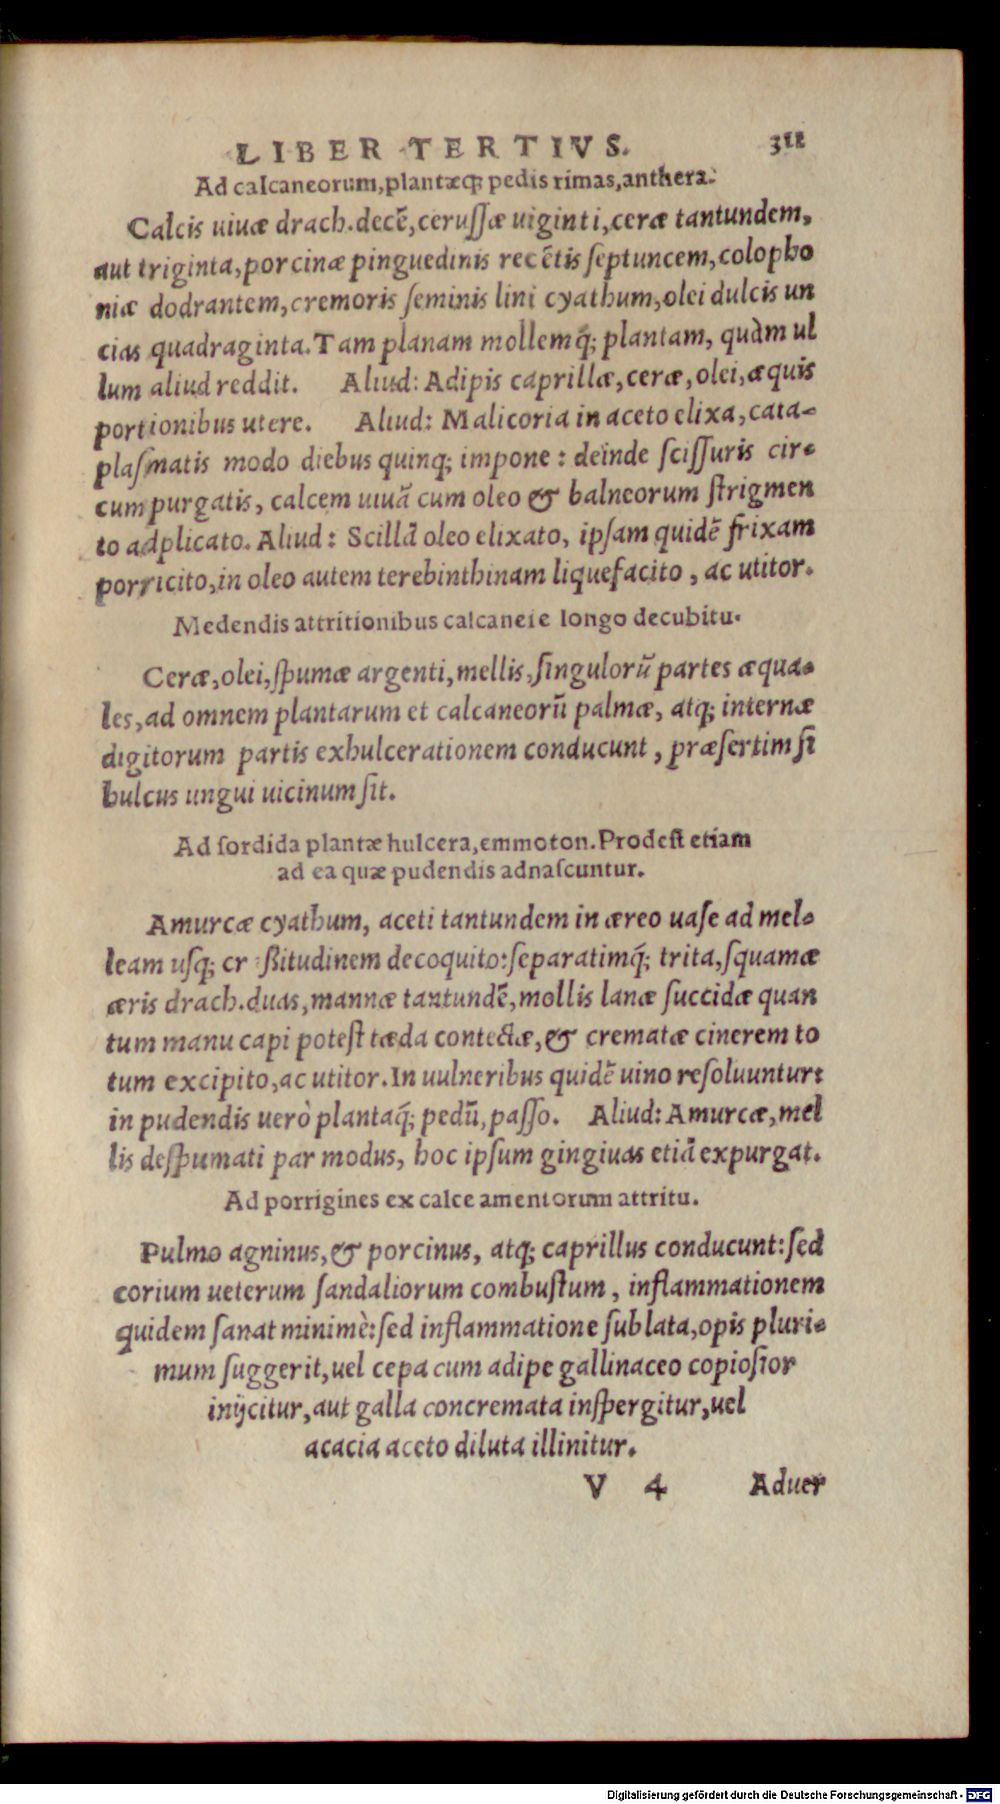 LIBER TERTIVS. 311
Ad calcaneorum,plantæq; pedis rimas,anthera.
Calcis uiuæ drach.decẽ,ceruſſæ uiginti,ceræ tantundem,
aut triginta,porcinæ pinguedinis recẽtis ſeptuncem,colopho
niæ dodrantem,cremoris ſeminis lini cyathum,olei dulcis un
cias quadraginta.Tam planam mollemq́; plantam, quàm ul
lum aliud reddit. Aliud: Adipis caprillæ,ceræ,olei,æquis
portionibus utere. Aliud: Malicoria in aceto elixa,cata-
plaſmatis modo diebus quinq; impone: deinde ſciſſuris cir-
cumpurgatis, calcem uiuã cum oleo & balneorum ſtrigmen
to adplicato. Aliud: Scillã oleo elixato, ipſam quidẽ frixam
porricito,in oleo autem terebinthinam liquefacito, ac utitor.
Medendis attritionibus calcanei e longo decubitu.
Ceræ,olei,ſpumæ argenti,mellis,ſingulorũ partes æqua-
les,ad omnem plantarum et calcaneorũ palmæ, atq; internæ
digitorum partis exhulcerationem conducunt, præſertim ſi
hulcus ungui uicinum ſit.
Ad ſordida plantæ hulcera,emmoton.Prodeſt etiam
ad ea quæ pudendis adnaſcuntur.
Amurcæ cyathum, aceti tantundem in æreo uaſe ad mel-
leam uſq; cr ßitudinem decoquito:ſeparatimq́; trita,ſquamæ
æris drach.duas,mannæ tantundẽ,mollis lanæ ſuccidæ quan
tum manu capi poteſt tæda contectæ,& crematæ cinerem to
tum excipito,ac utitor.In uulneribus quidẽ uino reſoluuntur:
in pudendis uerò plantaq́; pedũ,paſſo. Aliud: Amurcæ,mel
lis deſpumati par modus, hoc ipſum gingiuas etiã expurgat.
Ad porrigines ex calceamentorum attritu.
Pulmo agninus,& porcinus, atq; caprillus conducunt:ſed
corium ueterum ſandaliorum combuſtum, inflammationem
quidem ſanat minimè:ſed inflammatione ſublata,opis pluri-
mum ſuggerit,uel cepa cum adipe gallinaceo copioſior
inijcitur,aut galla concremata inſpergitur,uel
acacia aceto diluta illinitur.
V 4 Aduer
Digitalisierung gefördert durch die Deutsche Forschungsgemeinschaft - DFG